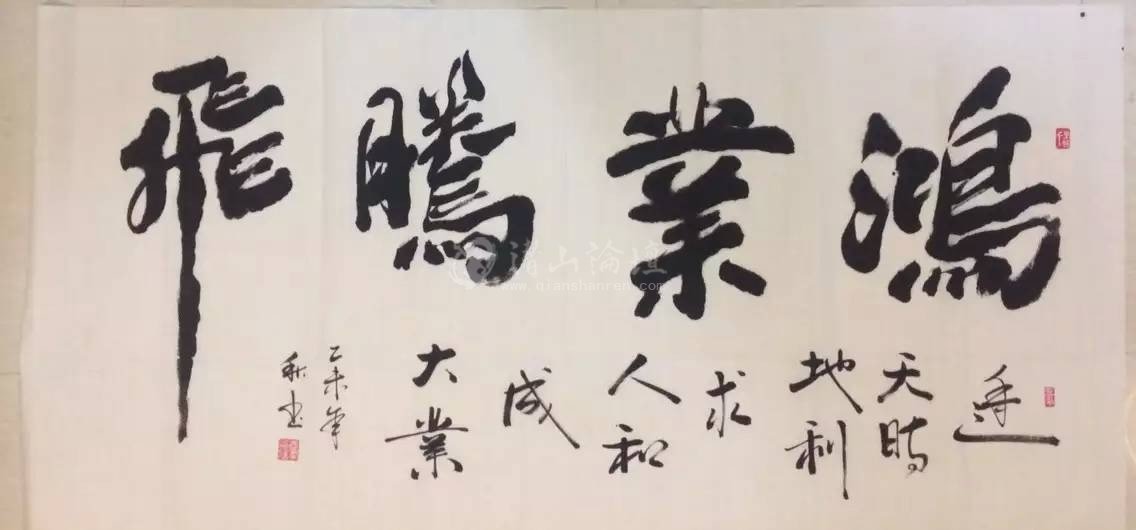 鴻業騰飛
逢
天時
地利
求
人和
成
大業
乙未年
秋書
潜山論壇
www.qianshanren.com